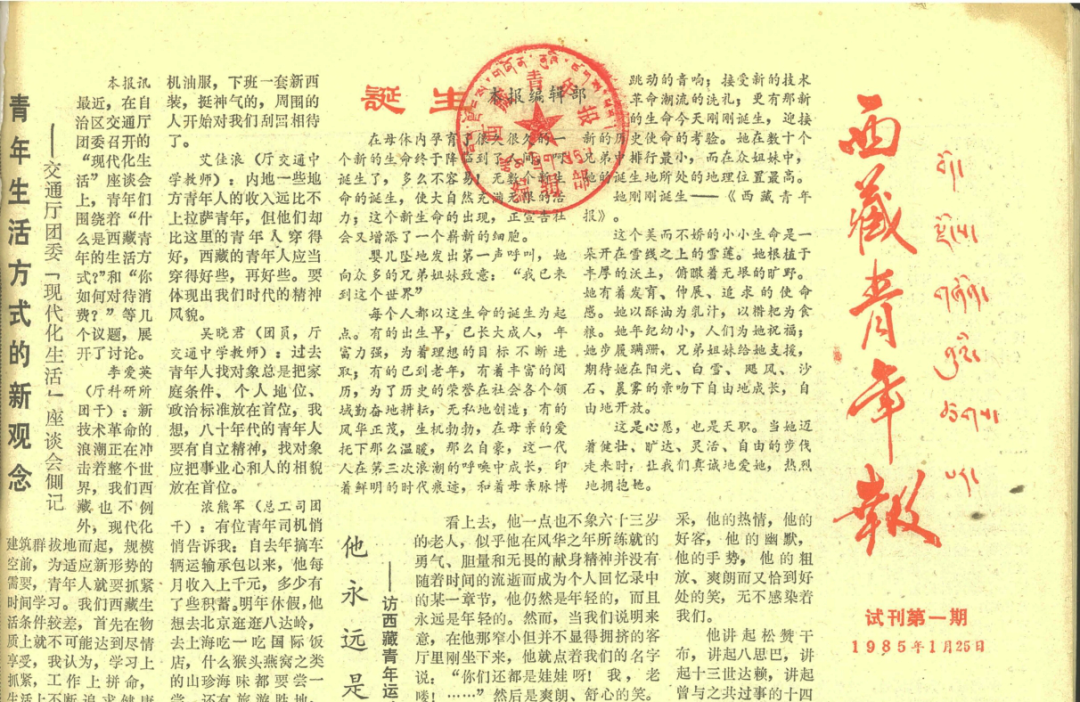 西藏青年報
试刊第一期
1985年1月25日
誕生
本报编辑部
在母体内孕育了很久很久的一
个新的生命终于降临到了人间。呱呱
诞生了，多么不容易！无数个新生
命的诞生，使大自然充满无限的活
力；这个新生命的出现，正宣告社
会又增添了一个崭新的细胞。
婴儿坠地发出第一声呼叫，她
向众多的兄弟姐妹致意：“我已来
到这个世界”
每个人都以这生命的诞生为起
点。有的出生早，已长大成人，年
富力强，为着理想的目标不断进
取；有的已到老年，有着丰富的阅
历，为了历史的荣誉在社会各个领
域勤奋地耕耘，无私地创造；有的
风华正茂，生机勃勃，在母亲的爱
抚下那么温暖，那么自豪，这一代
人在第三次浪潮的呼唤中成长，印
着鲜明的时代痕迹，和着母亲脉搏
跳动的音响；接受新的技术
革命潮流的洗礼；更有那新
的生命今天刚刚诞生，迎接
新的历史使命的考验。她在数十个
兄弟中排行最小，而在众姐妹中，
她的诞生地所处的地理位置最高。
她刚刚诞生——《西藏青年
报》。
这个美而不娇的小小生命是一
朵开在雪线之上的雪莲。她根植于
丰厚的沃土，俯瞰着无垠的旷野。
她有着发育、伸展、追求的使命
感。她以酥油为乳汁，以糌粑为食
粮。她年纪幼小，人们为她祝福；
她步履蹒跚，兄弟姐妹给她支援，
期待她在阳光、白雪、飓风、沙
石、晨雾的亲吻下自由地成长，自
由地开放。
这是心愿，也是天职。当她迈
着健壮、旷达、灵活、自由的步伐
走来时；让我们真诚地爱她，热烈
地拥抱她。
青年生活方式的新观念
——交通厅团委「现代化生活」座谈会侧记
本报讯
最近，在自
治区交通厅
团委召开的
“现代化生
活”座谈会
上，青年们
围绕着“什
么是西藏青
年的生活方
式？”和“你
如何对待消
费？”等几
个议题，展
开了讨论。
李爱英
（厅科研所
团干）：新
技术革命的
浪潮正在冲
击着整个世
界，我们西
藏也不例
外，现代化
建筑群拔地而起，规模
空前，为适应新形势的
需要，青年人就要抓紧
时间学习。我们西藏生
活条件较差，首先在物
质上就不可能达到尽情
享受，我认为，学习上
抓紧，工作上拼命，
生活上不断追求健康
机油服，下班一套新西
装，挺神气的，周围的
人开始对我们刮目相待
了。
艾佳浪（厅交通中
学教师）：内地一些地
方青年人的收入远比不
上拉萨青年，但他们却
比这里的青年人穿得
好，西藏的青年人应当
穿得好些，再好些。要
体现出我们时代的精神
风貌。
吴晓君（团员，厅
交通中学教师）：过去
青年人找对象总是把家
庭条件、个人地位、
政治标准放在首位，我
想，八十年代的青年人
要有自立精神，找对象
应把事业心和人的相貌
放在首位。
浪熊军（总工司团
干）：有位青年司机悄
悄告诉我：自去年搞车
辆运输承包以来，他每
月收入上千元，多少有
了些积蓄。明年休假，他
想去北京逛逛八达岭，
去上海吃一吃国际饭
店，什么猴头燕窝之类
的山珍海味都要尝一
他永远是
——访西藏青年运
看上去，他一点也不象六十三岁
的老人，似乎他在风华之年所练就的
勇气、胆量和无畏的献身精神并没有
随着时间的流逝而成为个人回忆录中
的某一章节，他仍然是年轻的，而且
永远是年轻的。然而，当我们说明来
意，在他那窄小但并不显得拥挤的客
厅里刚坐下来，他就点着我们的名字
说：“你们还都是娃娃呀！我，老
喽！……”然后是爽朗、舒心的笑。
采，他的热情，他的
好客，他的幽默，
他的手势，他的粗
放、爽朗而又恰到好
处的笑，无不感染着
我们。
他讲起松赞干
布，讲起八思巴，讲
起十三世达赖，讲起
曾与之共过事的十四